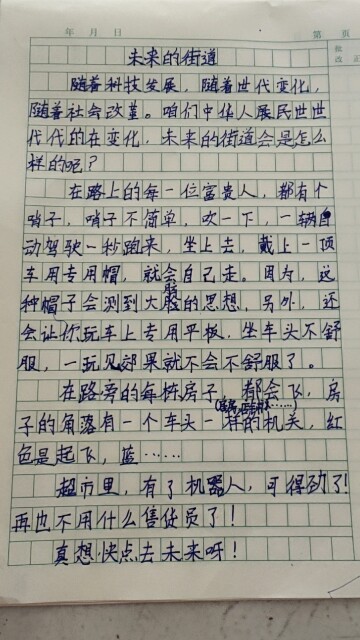 年 月 日 第 页
批改
未来的街道
随着科技发展，随着世代变化，
随着社会改革。咱们中华人民世世
代代的在变化，未来的街道会是怎么
样的呢？
在路上的每一位富贵人，都有个
哨子，哨子不简单，吹一下，一辆自
动驾驶一秒跑来，坐上去，戴上一顶
车用专用帽，就会自己走。因为，这
种帽子会测到大脑的思想，另外，还
会让你玩车上专用平板，坐车头不舒
服，一玩效果就不会不舒服了。
在路旁的每栋房子，都会飞，房
子的角落有一个车头一样的机关，红
色是起飞，蓝……
超市里，有了机器人，可得劲了！
再也不用什么售货员了！
真想快点去未来呀！